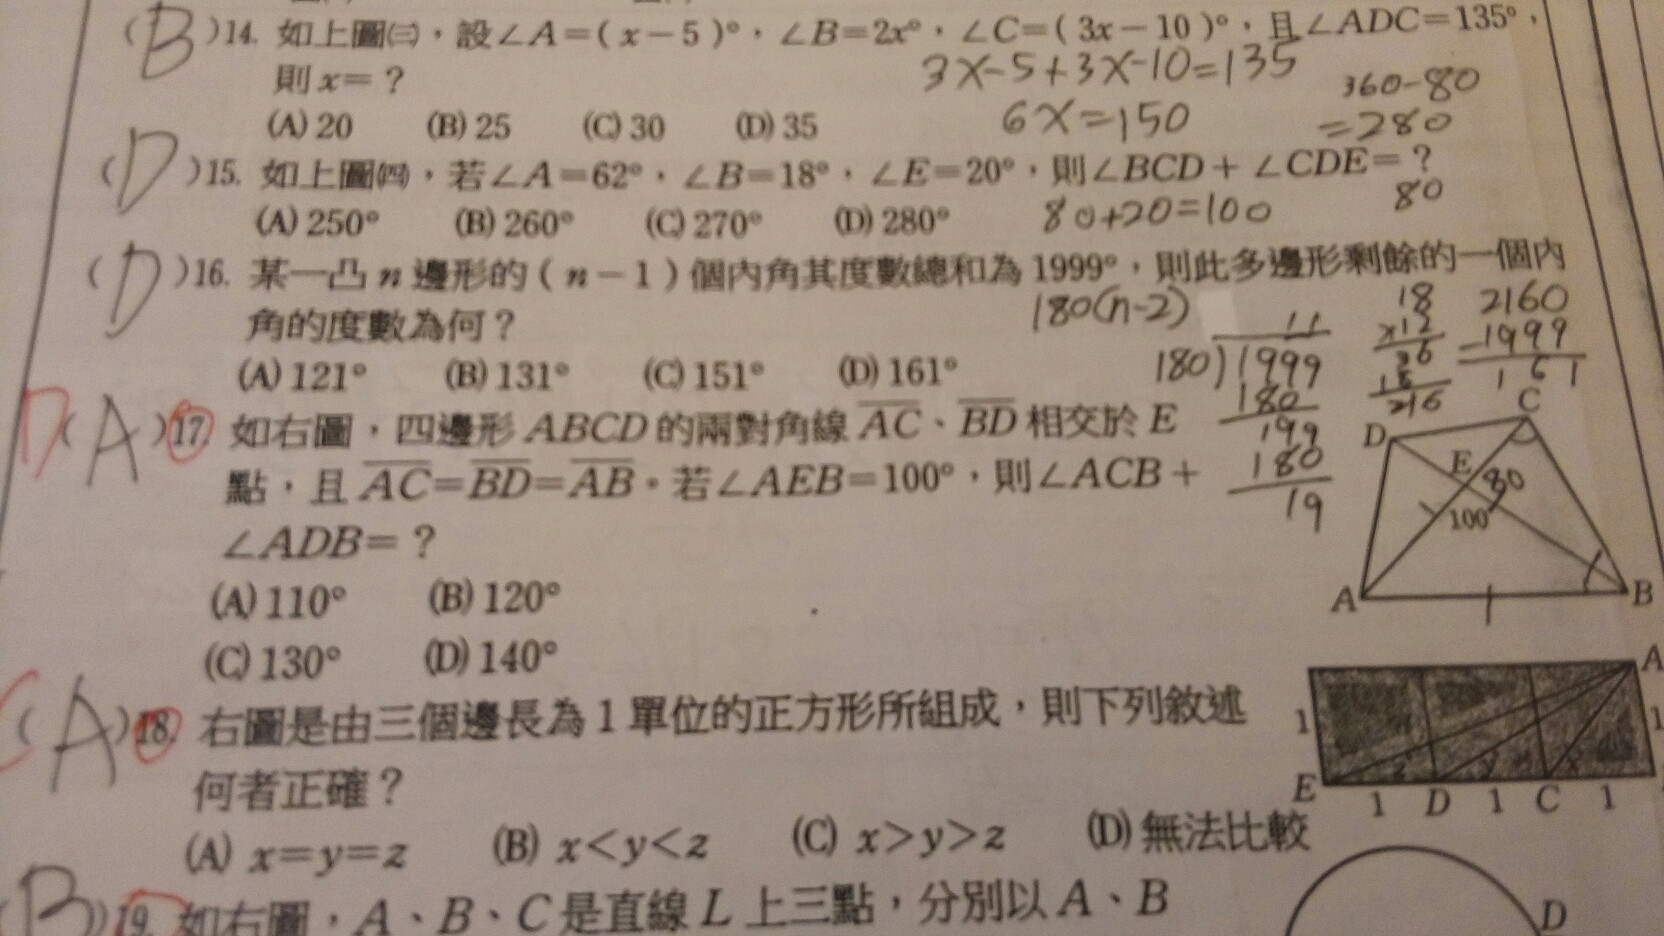 (B)14. 如上圖㈢，設∠A=(x-5)°，∠B=2x°，∠C=(3x-10)°，且∠ADC=135°，
則x=？
3x-5+3x-10=135
6x=150
360-80
=280
(A) 20 (B) 25 (C) 30 (D) 35
(D)15. 如上圖㈣，若∠A=62°，∠B=18°，∠E=20°，則∠BCD+∠CDE=？
(A) 250° (B) 260° (C) 270° (D) 280°
80+20=100
80
(D)16. 某一凸n邊形的(n-1)個內角其度數總和為1999°，則此多邊形剩餘的一個內
角的度數為何？
180(n-2)
(A) 121° (B) 131° (C) 151° (D) 161°
11
180)1999
180
199
180
19
18
x12
36
18
216
2160
-1999
161
D(A)17. 如右圖，四邊形ABCD的兩對角線AC、BD相交於E
點，且AC=BD=AB。若∠AEB=100°，則∠ACB+
∠ADB=？
(A) 110° (B) 120°
(C) 130° (D) 140°
C
D
E
80
100
A B
C(A)18. 右圖是由三個邊長為1單位的正方形所組成，則下列敘述
何者正確？
(A) x=y=z (B) x<y<z (C) x>y>z (D) 無法比較
A
1 1
z y x
E 1 D 1 C 1
(B)19. 如右圖，A、B、C是直線L上三點，分別以A、B
D